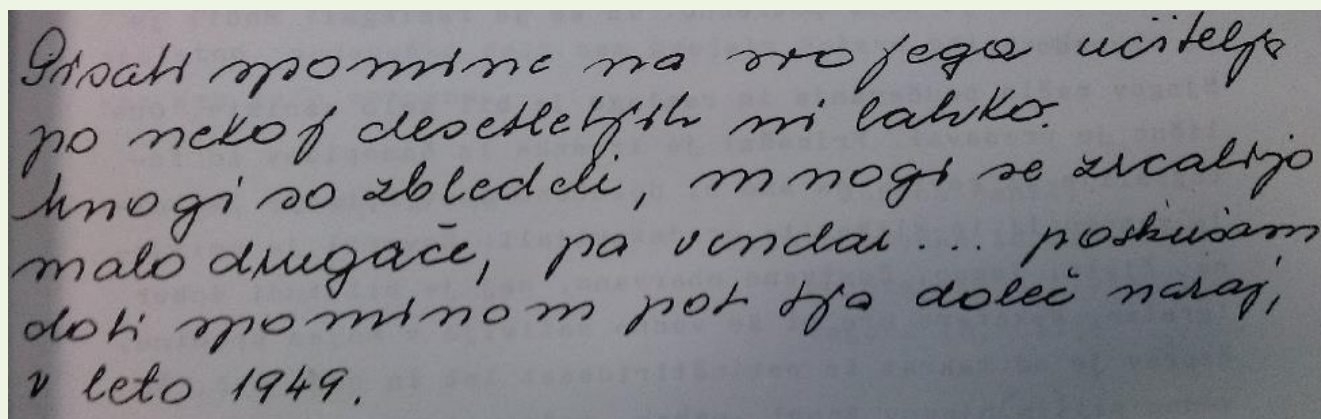 Pisati spomine na svojega učitelja
po nekaj desetletjih ni lahko.
Mnogi so zbledeli, mnogi se zrcalijo
malo drugače, pa vendar... poskušam
dati spominom pot tja daleč nazaj,
v leto 1949.